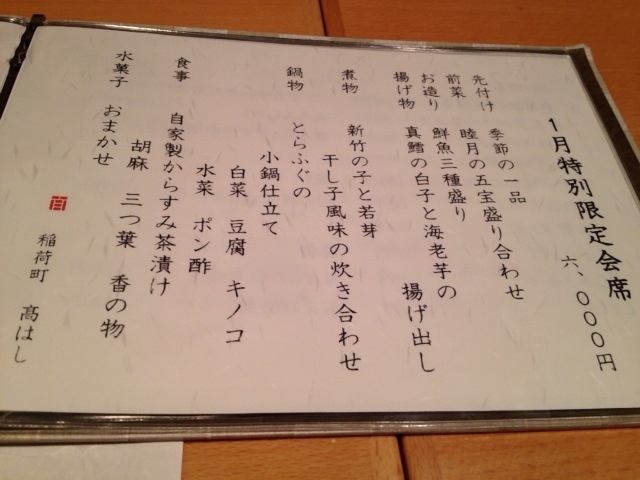 1月特別限定会席
六、〇〇〇円
先付け 季節の一品
前菜 睦月の五宝盛り合わせ
お造り 鮮魚三種盛り
揚げ物 真鱈の白子と海老芋の
揚げ出し
煮物 新竹の子と若芽
干し子風味の炊き合わせ
鍋物 とらふぐの
小鍋仕立て
白菜 豆腐 キノコ
水菜 ポン酢
食事 自家製からすみ茶漬け
胡麻 三つ葉 香の物
水菓子 おまかせ
稲荷町 高はし